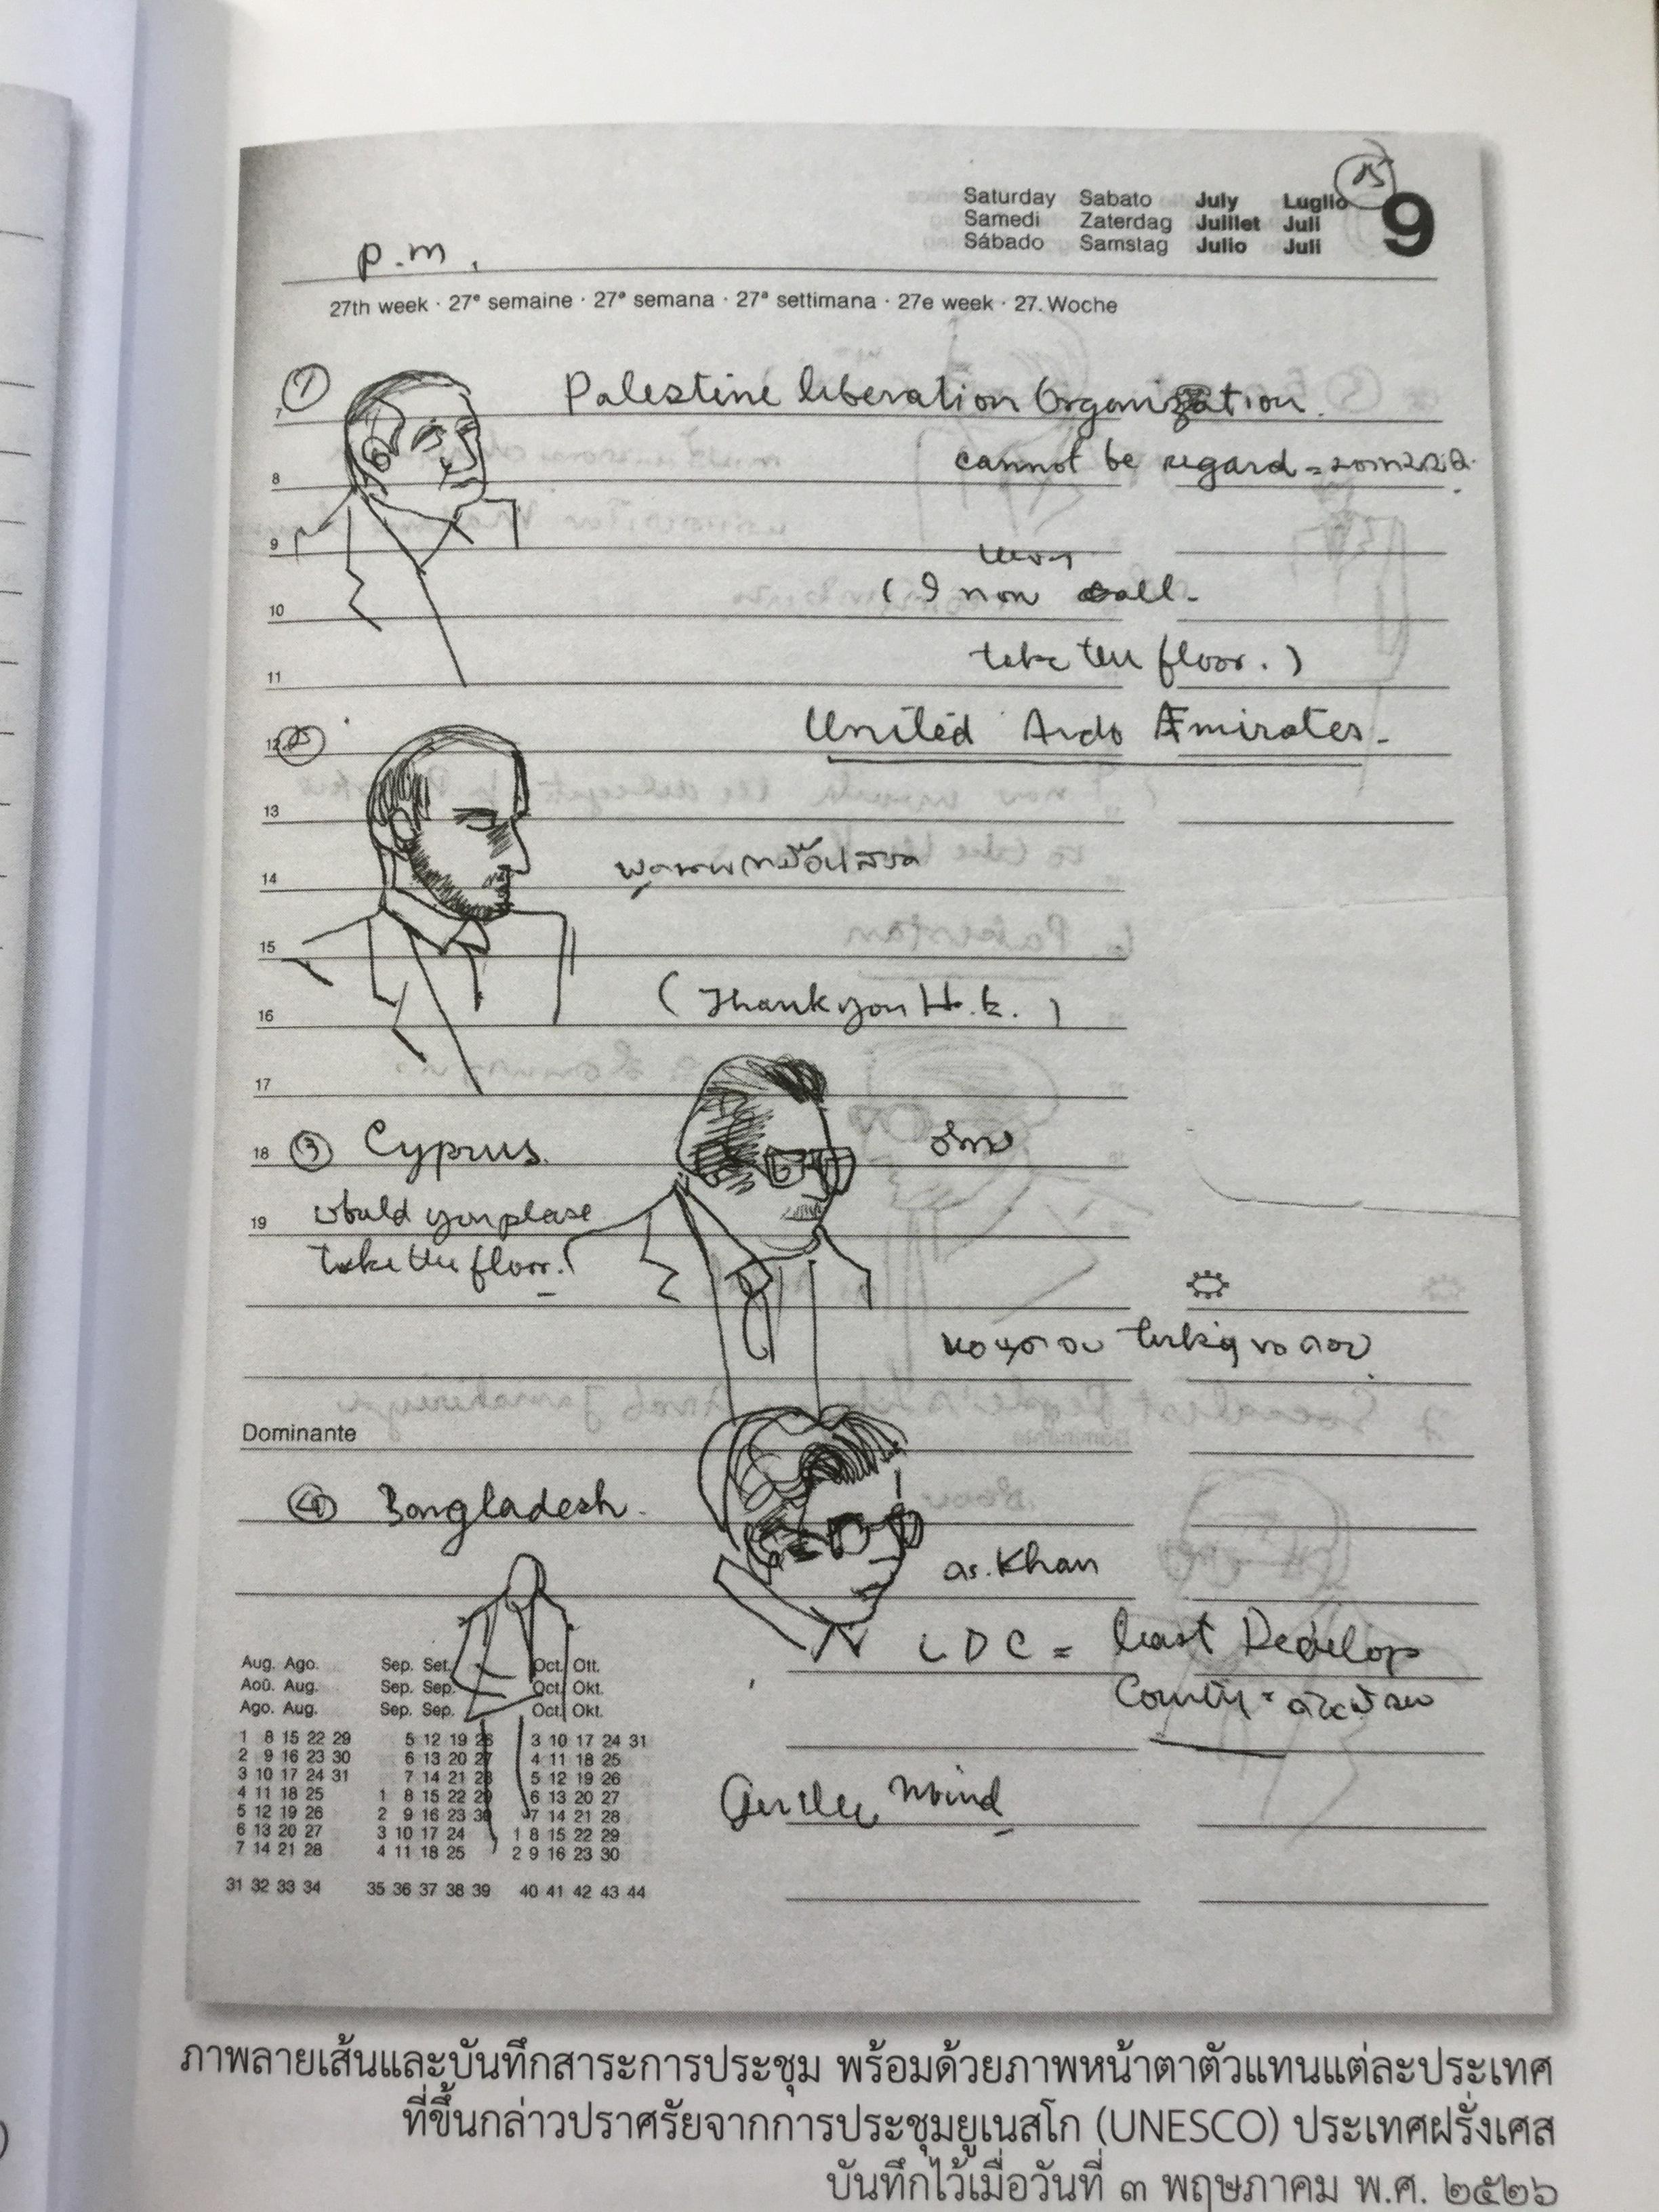 Saturday Sabato July Luglio
Samedi Zaterdag Juillet Juli
Sábado Samstag Julio Juli
9
p.m.
27th week · 27e semaine · 27a semana · 27a settimana · 27e week · 27. Woche
1 Palestine liberation Organization.
7
cannot be regard =
8
9
(I now call -
10
take the floor.)
11
United Arab Emirates.
12
13
14
15
(Thank you H.E.)
16
17
18 3 Cyprus.
19 would you plase
take the floor.
Dominante
Bangladesh.
as. Khan
LDC = least Develop
Aug. Ago. Sep. Set. Oct. Ott.
Aoû. Aug. Sep. Sep. Oct. Okt.
Ago. Aug. Sep. Sep. Oct. Okt.
1 8 15 22 29 5 12 19 26 3 10 17 24 31
2 9 16 23 30 6 13 20 27 4 11 18 25
3 10 17 24 31 7 14 21 28 5 12 19 26
4 11 18 25 1 8 15 22 29 6 13 20 27
5 12 19 26 2 9 16 23 30 7 14 21 28
6 13 20 27 3 10 17 24 1 8 15 22 29
7 14 21 28 4 11 18 25 2 9 16 23 30
31 32 33 34 35 36 37 38 39 40 41 42 43 44
Mind
ภาพลายเส้นและบันทึกสาระการประชุม พร้อมด้วยภาพหน้าตาตัวแทนแต่ละประเทศ
ที่ขึ้นกล่าวปราศรัยจากการประชุมยูเนสโก (UNESCO) ประเทศฝรั่งเศส
บันทึกไว้เมื่อวันที่ ๓ พฤษภาคม พ.ศ. ๒๕๒๖